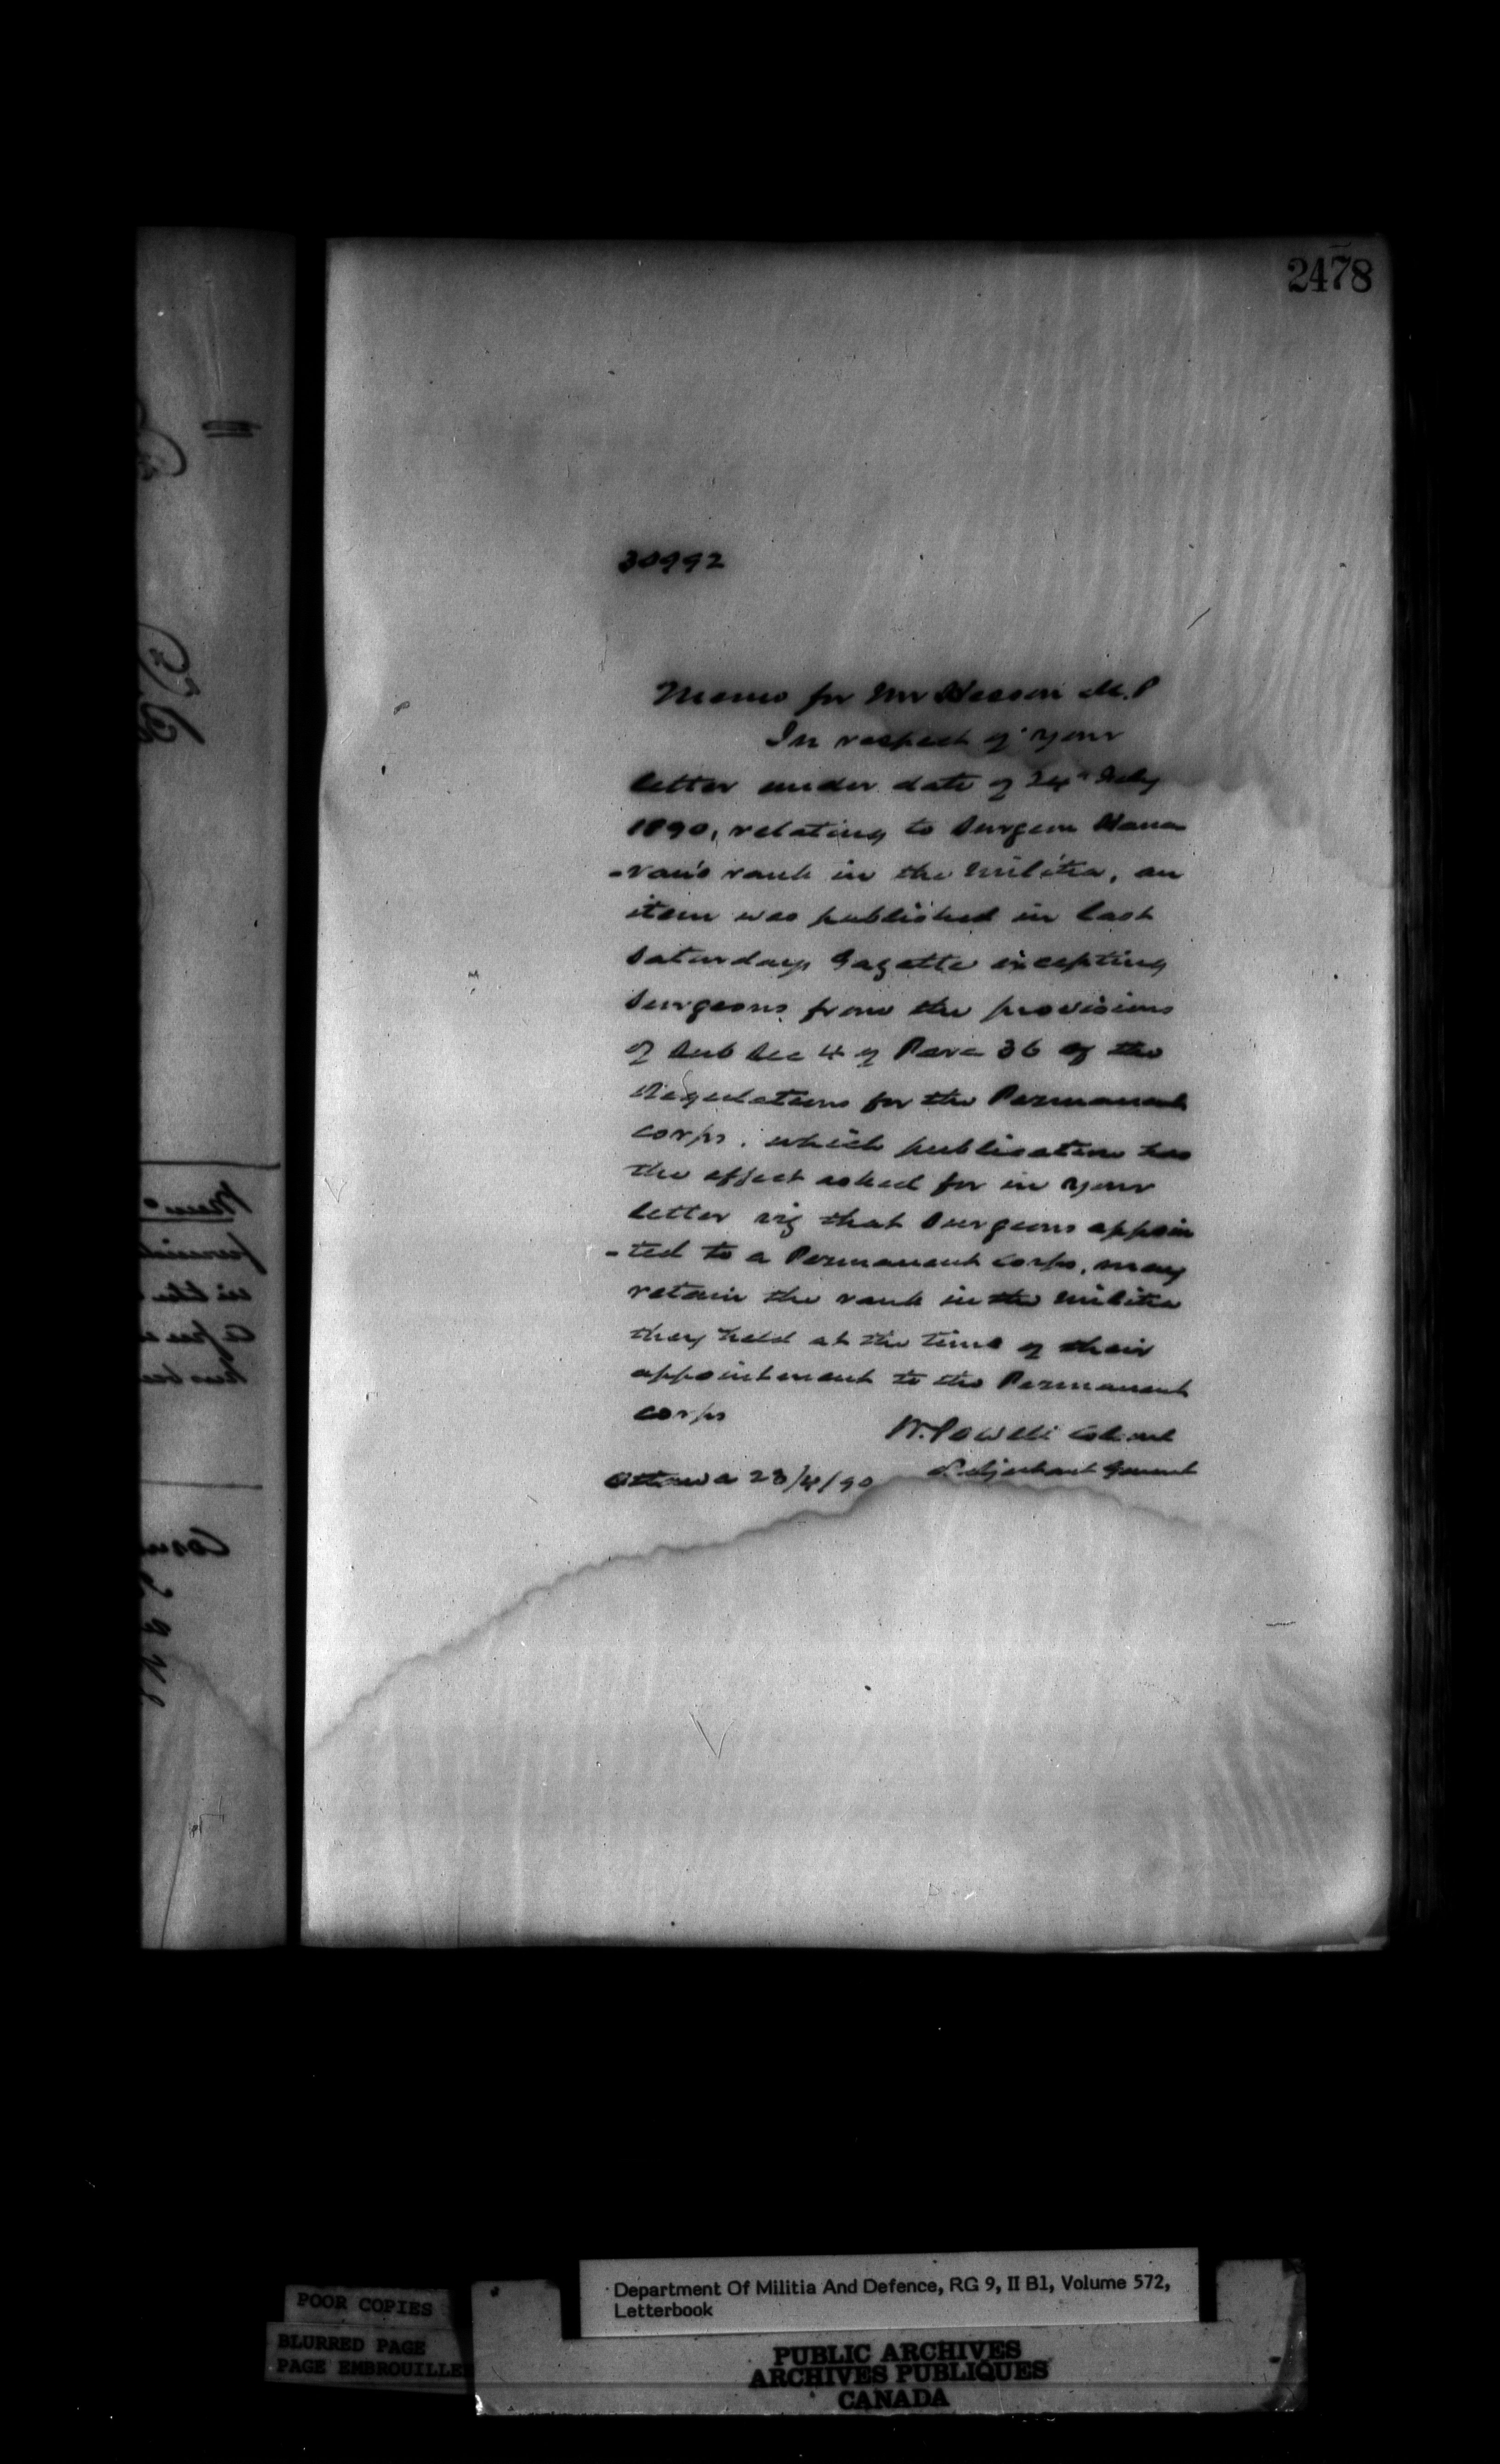 2478
30992
Memo for Mr Hesson M.P
In respect of your
letter under date of 24th Feby
1890, relating to Surgeon Hana
-van's rank in the Militia, an
item was published in last
Saturdays Gazette excepting
Surgeons from the provisions
of Sub Sec 4 of Para 36 of the
Regulations for the Permanent
corps. which publication has
the effect asked for in your
letter viz that Surgeons appoin
-ted to a Permanent Corps, may
retain the rank in the Militia
they held at the time of their
appointment to the Permanent
corps
W. Powell Colonel
Adjutant General
Ottawa 23/4/90
Department Of Militia And Defence, RG 9, II B1, Volume 572,
Letterbook
POOR COPIES
BLURRED PAGE
PAGE EMBROUILLEE
PUBLIC ARCHIVES
ARCHIVES PUBLIQUES
CANADA